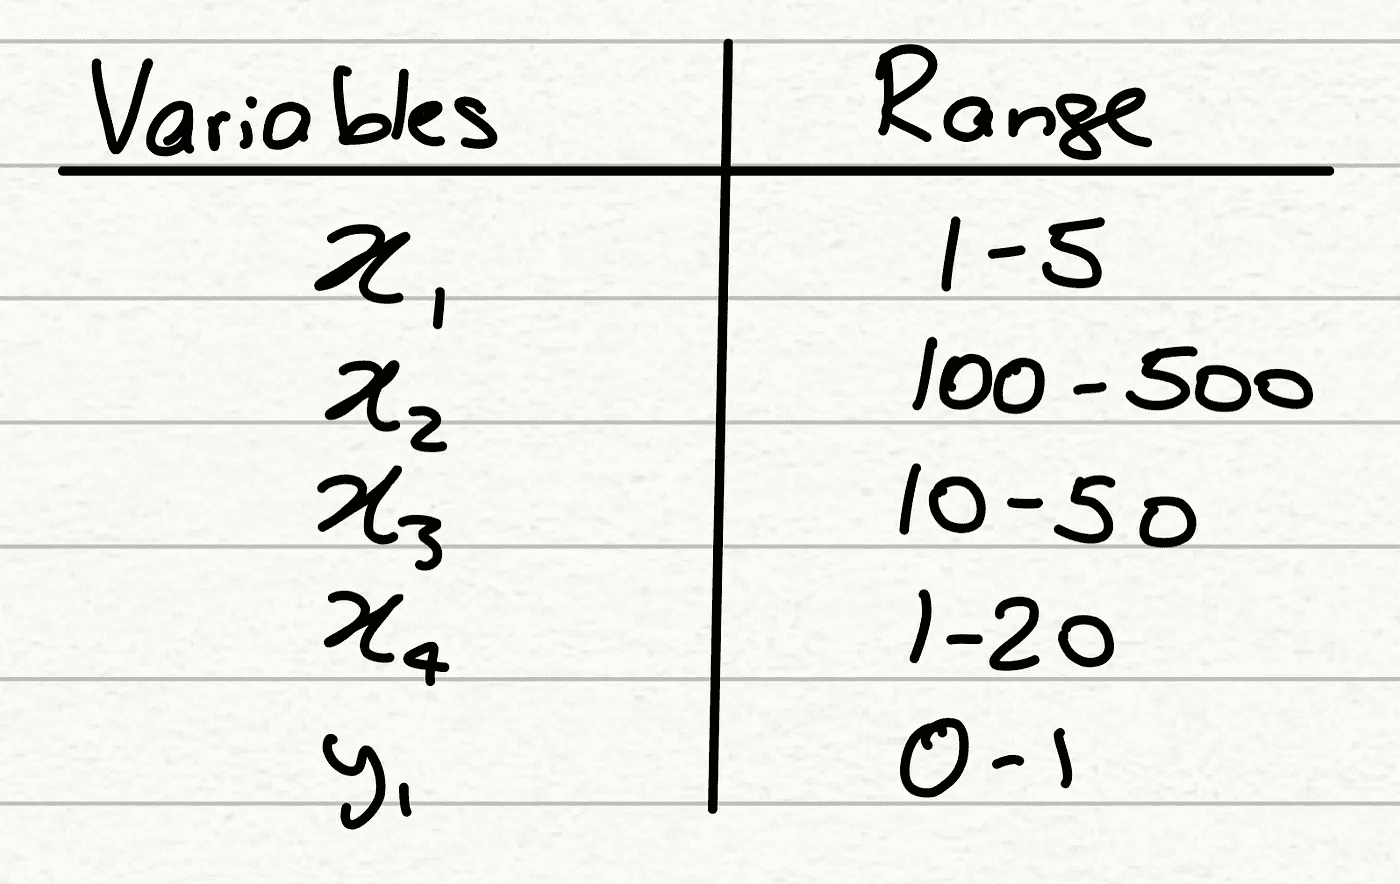 Variables Range
x₁ 1-5
x₂ 100-500
x₃ 10-50
x₄ 1-20
y₁ 0-1